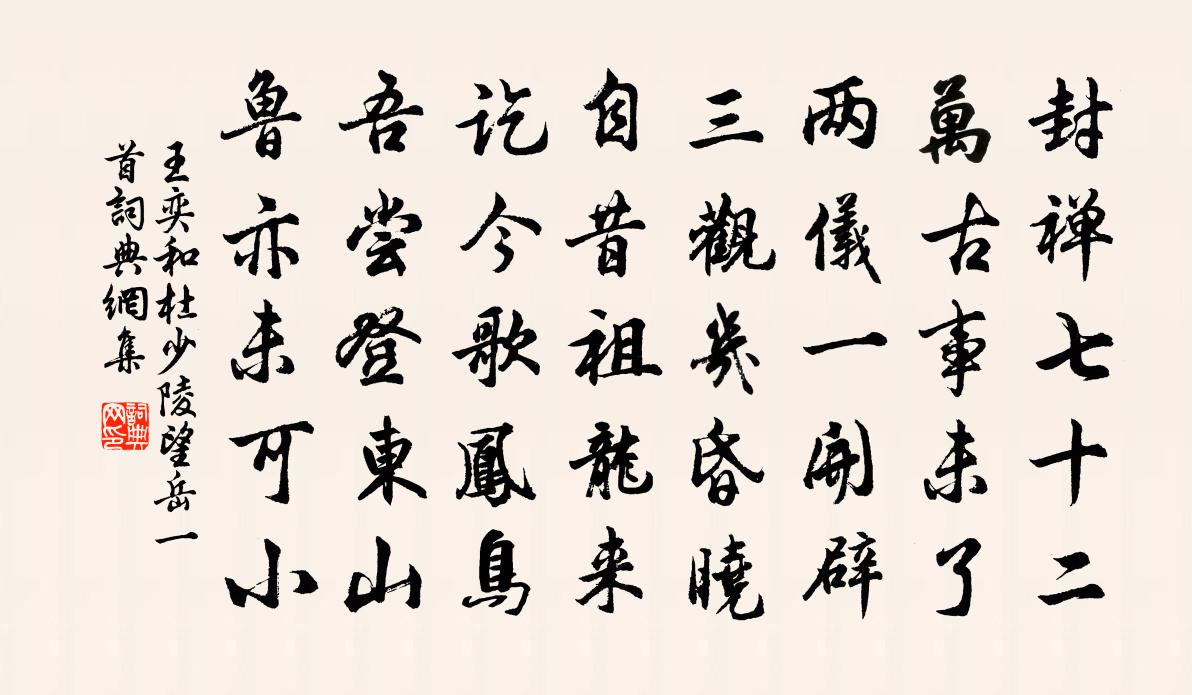 封禅七十二
萬古事未了
两儀一開辟
三觀幾昏曉
自昔祖龍来
訖今歌鳳鳥
吾嘗登東山
魯亦未可小
王奕和杜少陵望岳一
首詞典網集
詞典
网印